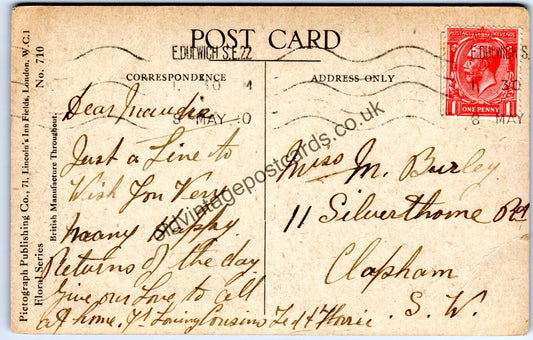 POST CARD
E.DULWICH S.E.22
CORRESPONDENCE
ADDRESS ONLY
1 30 M
8 MAY 0
E.DULWICH S.
30
8 MAY
POSTAGE REVENUE
1 ONE PENNY 1
Dear Maudie
Just a Line to
Wish You Very
Many Happy
Returns of the day
Give our Love to all
at home. Yr Loving Cousins Ted & Florrie
Miss M. Burley
11 Silverthorne Rd
Clapham
S. W.
Pictograph Publishing Co., 71, Lincoln's Inn Fields, London, W.C.1
Floral Series
British Manufacture Throughout.
No. 710
oldvintagepostcards.co.uk